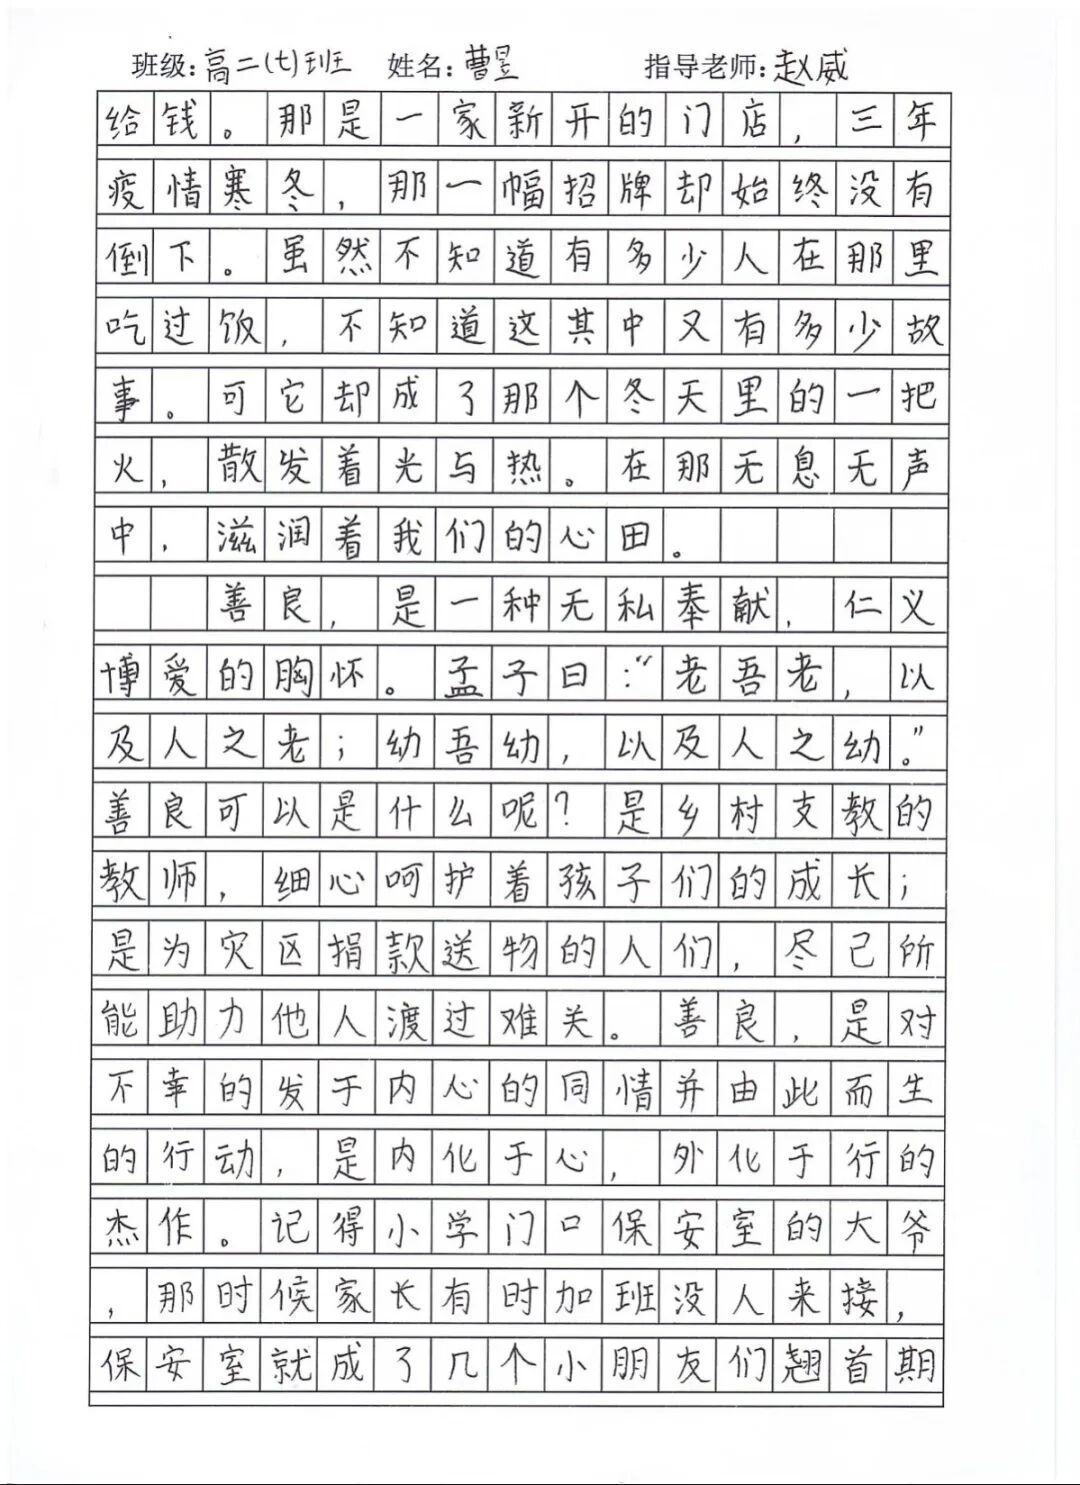 班级:高二(七)班 姓名:曹昱 指导老师:赵威
给钱。那是一家新开的门店,三年
疫情寒冬,那一幅招牌却始终没有
倒下。虽然不知道有多少人在那里
吃过饭,不知道这其中又有多少故
事。可它却成了那个冬天里的一把
火,散发着光与热。在那无息无声
中,滋润着我们的心田。
善良,是一种无私奉献,仁义
博爱的胸怀。孟子曰:“老吾老,以
及人之老;幼吾幼,以及人之幼。”
善良可以是什么呢?是乡村支教的
教师,细心呵护着孩子们的成长;
是为灾区捐款送物的人们,尽己所
能助力他人渡过难关。善良,是对
不幸的发于内心的同情并由此而生
的行动,是内化于心,外化于行的
杰作。记得小学门口保安室的大爷
,那时候家长有时加班没人来接,
保安室就成了几个小朋友们翘首期